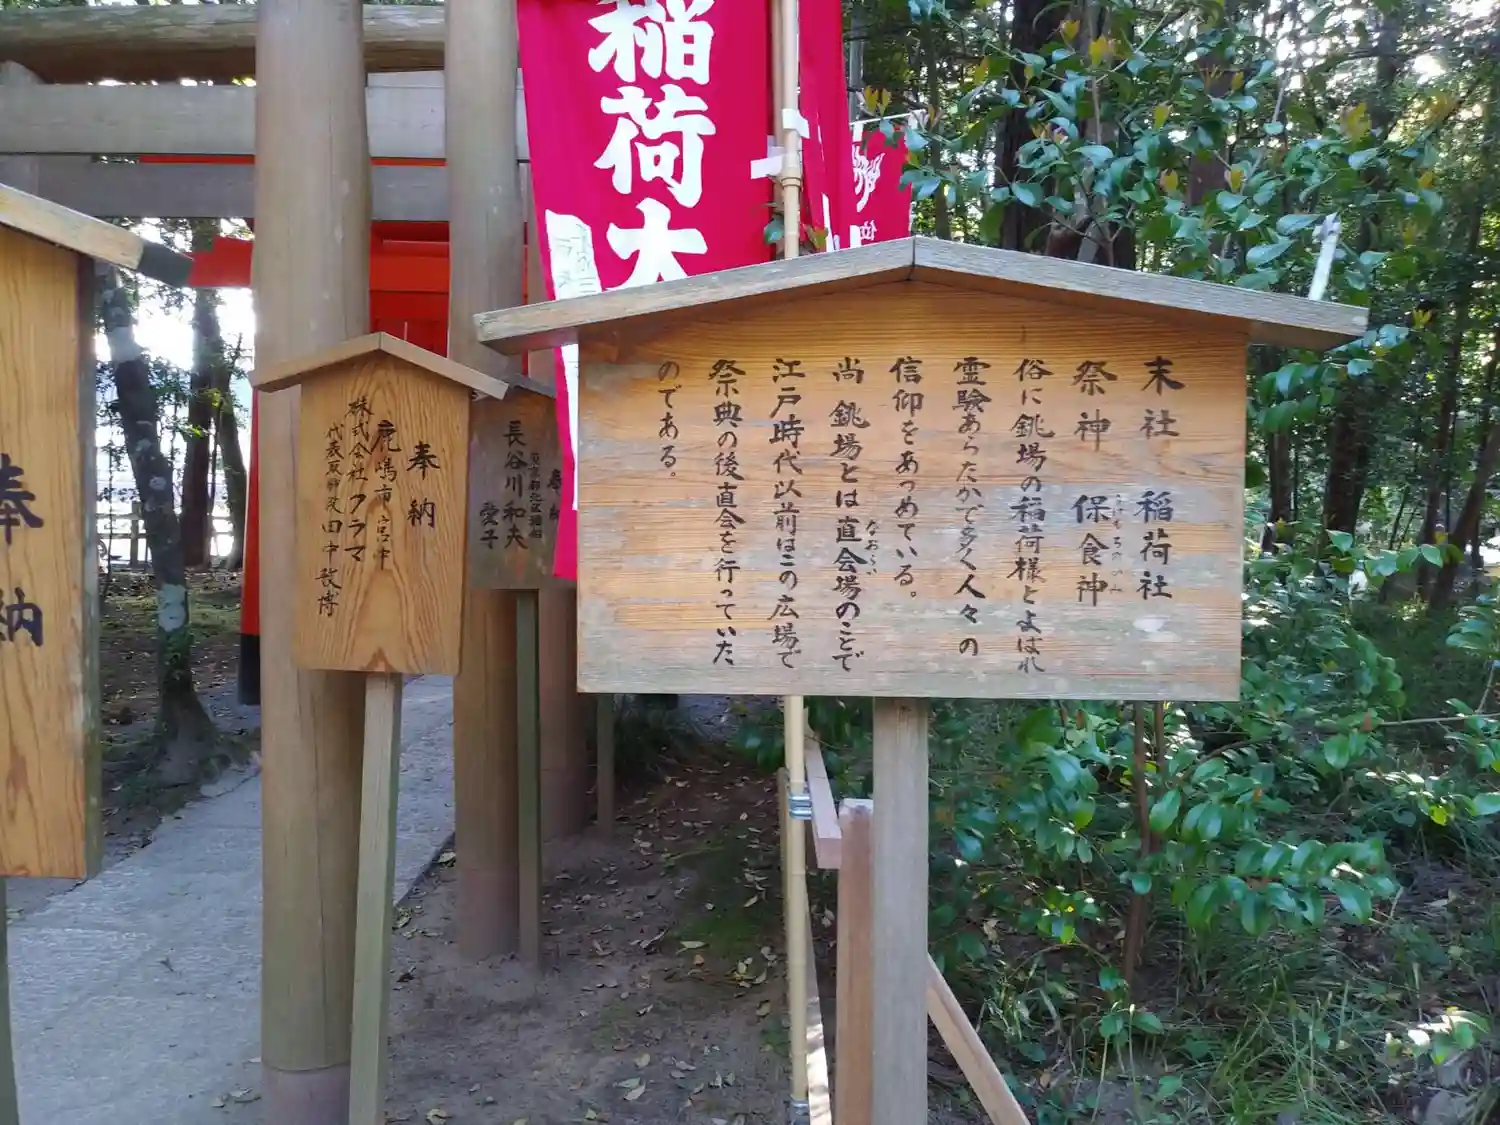 末社 稲荷社
祭神 保食神
うけもちのかみ
俗に銚場の稲荷様とよばれ
霊験あらたかで多く人々の
信仰をあつめている。
尚 銚場とは直会場のことで
なおらい
江戸時代以前はこの広場で
祭典の後直会を行っていた
のである。
稲荷大
奉納
鹿嶋市宮中
株式会社クラマ
代表取締役田中敦博
奉納
長谷川和夫
愛子
奉納